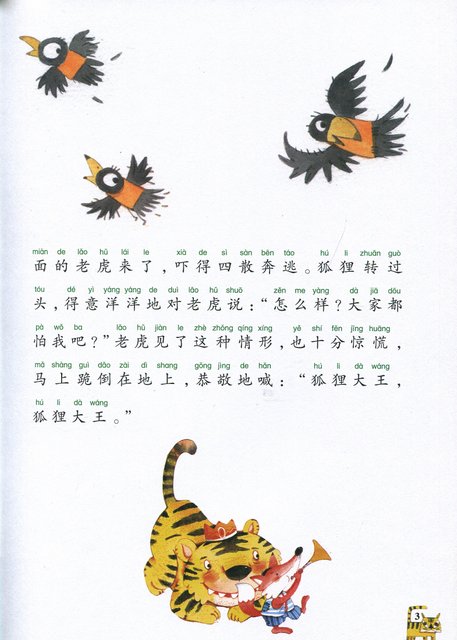 miàn de lǎo hǔ lái le xià de sì sàn bēn táo hú li zhuǎn guò
面的老虎来了，吓得四散奔逃。狐狸转过
tóu dé yì yáng yáng de duì lǎo hǔ shuō zěn me yàng dà jiā dōu
头，得意洋洋地对老虎说：“怎么样？大家都
pà wǒ ba lǎo hǔ jiàn le zhè zhǒng qíng xíng yě shí fēn jīng huāng
怕我吧？”老虎见了这种情形，也十分惊慌，
mǎ shàng guì dǎo zài dì shang gōng jìng de hǎn hú li dà wáng
马上跪倒在地上，恭敬地喊：“狐狸大王，
hú li dà wáng
狐狸大王。”
3